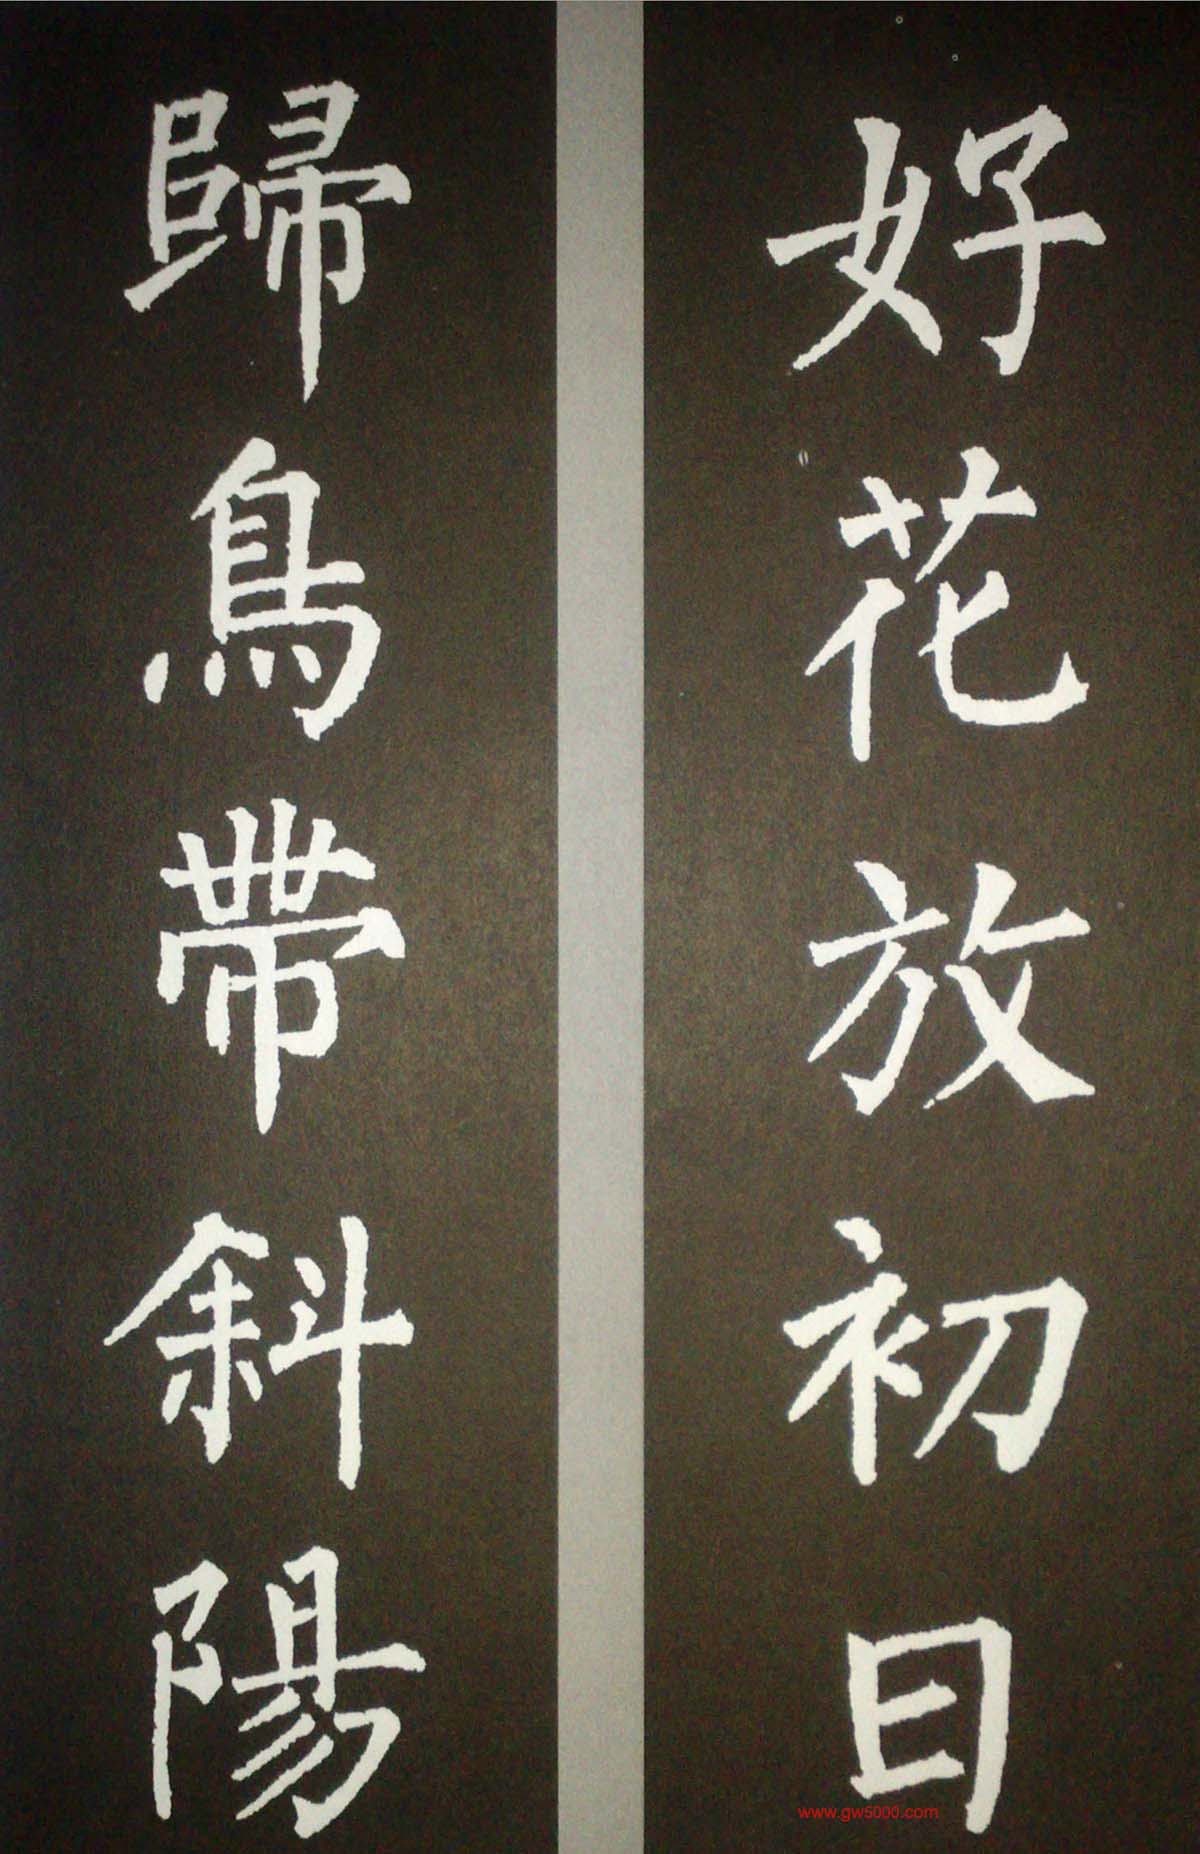 好花放初日
歸鳥帶斜陽
www.gw5000.com